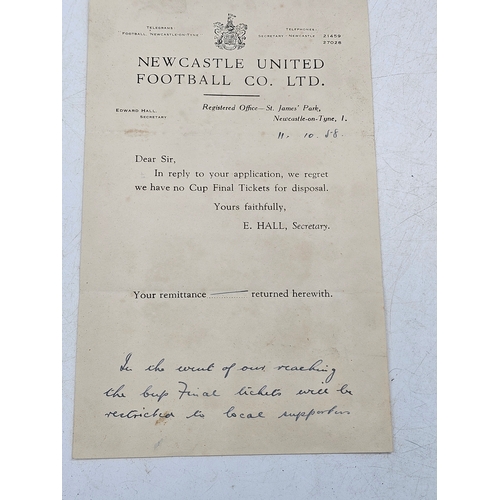 Telegrams
Football, Newcastle-on-Tyne
Telephones:
Secretary – Newcastle 21459
27028
NEWCASTLE UNITED
FOOTBALL CO. LTD.
Edward Hall
Secretary
Registered Office—St. James' Park,
Newcastle-on-Tyne, 1.
11. 10. 58.
Dear Sir,
In reply to your application, we regret
we have no Cup Final Tickets for disposal.
Yours faithfully,
E. HALL, Secretary.
Your remittance ............ returned herewith.
In the event of our reaching
the Cup Final tickets will be
restricted to local supporters